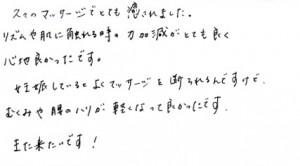 久々のマッサージでとても癒されました。
リズムや肌に触れる時の力加減がとても良く
心地良かったです。
妊娠しているとよくマッサージを断られるんですけど、
むくみや腰のハリが軽くなって良かったです。
また来たいです！